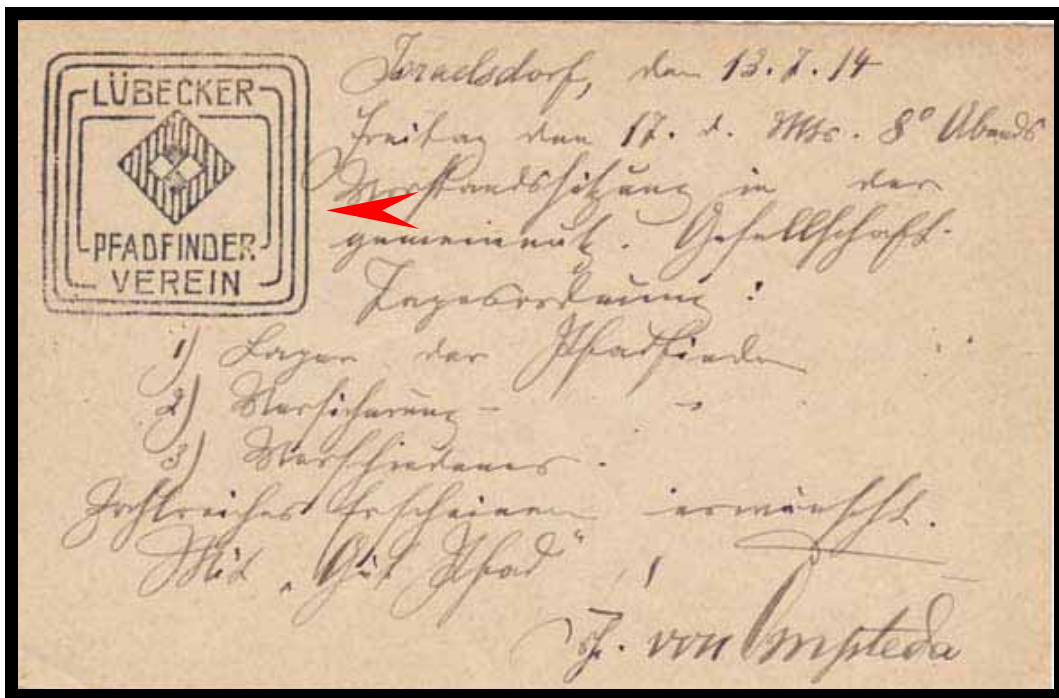 LÜBECKER
PFADFINDER
VEREIN
Israelsdorf, den 13.7.14
Freitag den 17. d. Mts. 8° Abends
Vorstandssitzung in der
gemeinnütz. Gesellschaft.
Tagesordnung:
1) Lager der Pfadfinder
2) Versicherung – " –
3) Verschiedenes.
Zahlreiches Erscheinen erwünscht.
Mit „Gut Pfad"
von Ompteda